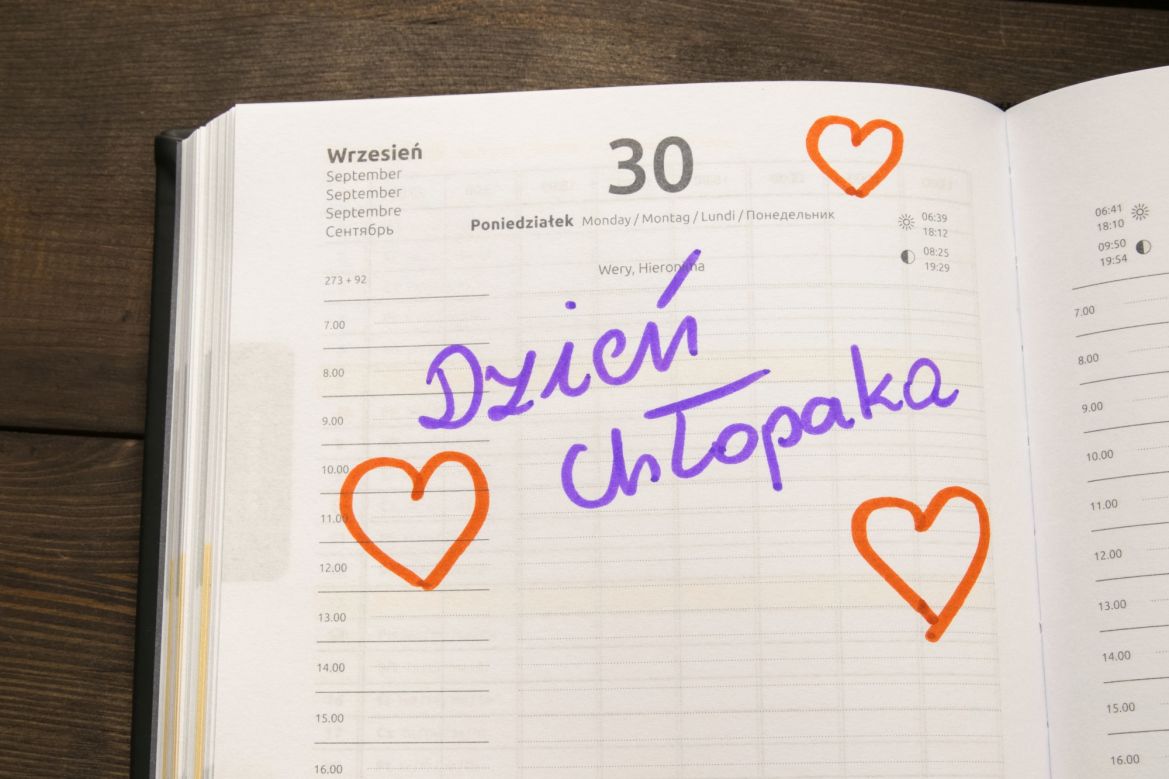 Wrzesień
September
September
Septembre
Сентябрь
30
Poniedziałek Monday / Montag / Lundi / Понедельник
06:39
18:12
08:25
19:29
Wery, Hieronima
273 + 92
Dzień
Chłopaka
7.00
8.00
9.00
10.00
11.00
12.00
13.00
14.00
15.00
16.00
06:41
18:10
09:50
19:54
7.00
8.00
9.00
10.00
11.00
12.00
13.00
14.00
15.00
16.00